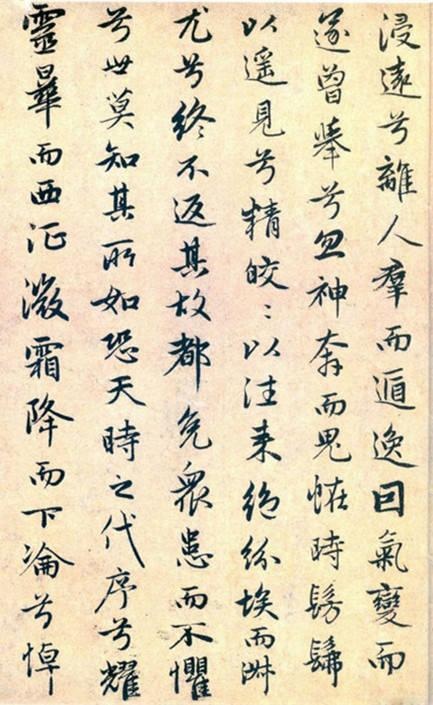 浸遠兮離人羣而遁逸因氣變而
遂曾舉兮忽神奔而鬼怪時髣髴
以遥見兮精皎〻以往来絶紛埃而淋
尤兮終不返其故都免衆患而不懼
兮世莫知其所如恐天時之代序兮耀
靈曅而西征微霜降而下淪兮悼